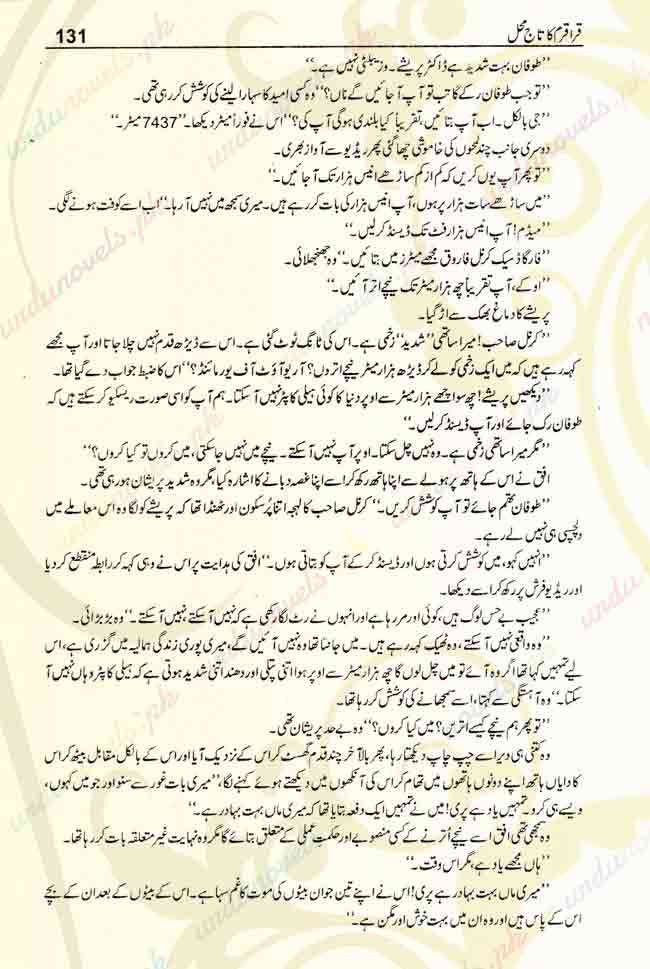 قراقرم کا تاج محل 131
’’طوفان بہت شدید ہے ڈاکٹر پریشے۔ وزیبلٹی نہیں ہے۔‘‘
’’تو جب طوفان رکے گا تب تو آپ آ جائیں گے ناں؟‘‘ وہ کسی امید کا سہارا لینے کی کوشش کر رہی تھی۔
’’جی بالکل۔ اب آپ بتائیں، تقریباً کیا بلندی ہو گی آپ کی؟‘‘ اس نے فوراً میٹر دیکھا۔ ’’7437 میٹر۔‘‘
دوسری جانب چند لمحوں کی خاموشی چھا گئی پھر ریڈیو سے آواز ابھری۔
’’تو پھر آپ یوں کریں کہ کم از کم ساڑھے انیس ہزار تک آ جائیں۔‘‘
’’میں ساڑھے سات ہزار پر ہوں، آپ انیس ہزار کی بات کر رہے ہیں۔ میری سمجھ میں نہیں آ رہا۔‘‘ اب اسے کوفت ہونے لگی۔
’’میڈم! آپ انیس ہزار فٹ تک ڈیسنڈ کر لیں۔‘‘
’’فار گاڈ سیک کرنل فاروق مجھے میٹرز میں بتائیں۔‘‘ وہ جھنجھلائی۔
’’اوکے، آپ تقریباً چھ ہزار میٹر تک نیچے اتر آئیں۔‘‘
پریشے کا دماغ بھک سے اڑ گیا۔
’’کرنل صاحب! میرا ساتھی ’’شدید‘‘ زخمی ہے۔ اس کی ٹانگ ٹوٹ گئی ہے۔ اس سے ڈیڑھ قدم نہیں چلا جاتا اور آپ مجھے
کہہ رہے ہیں کہ میں ایک زخمی کو لے کر ڈیڑھ ہزار میٹر نیچے اتروں؟ آر یو آؤٹ آف یور مائنڈ؟‘‘ اس کا ضبط جواب دے گیا تھا۔
’’دیکھیں پریشے! چھ سوا چھے ہزار میٹر سے اوپر دنیا کا کوئی ہیلی کاپٹر نہیں آ سکتا۔ ہم آپ کو اسی صورت ریسکیو کر سکتے ہیں کہ
طوفان رک جائے اور آپ ڈیسنڈ کر لیں۔‘‘
’’مگر میرا ساتھی زخمی ہے۔ وہ نہیں چل سکتا۔ اوپر آپ نہیں آ سکتے۔ نیچے میں نہیں جا سکتی، میں کروں تو کیا کروں؟‘‘
افق نے اس کے ہاتھ پر ہولے سے اپنا ہاتھ رکھ کر اسے اپنا غصہ دبانے کا اشارہ کیا، مگر وہ شدید پریشان ہو رہی تھی۔
’’طوفان تھم جائے تو آپ کوشش کریں۔‘‘ کرنل صاحب کا لہجہ اتنا پُرسکون اور ٹھنڈا تھا کہ پریشے کو لگا وہ اس معاملے میں
دلچسپی ہی نہیں لے رہے۔
’’انہیں کہو، میں کوشش کرتی ہوں اور ڈیسنڈ کر کے آپ کو بتاتی ہوں۔‘‘ افق کی ہدایت پر اس نے وہی کہہ کر رابطہ منقطع کر دیا
اور ریڈیو فرش پر رکھ کر اسے دیکھا۔
’’عجیب بے حس لوگ ہیں، کوئی اور مر رہا ہے اور انہوں نے رٹ لگا رکھی ہے کہ نہیں آ سکتے نہیں آ سکتے۔‘‘ وہ بڑبڑائی۔
’’وہ واقعی نہیں آ سکتے، وہ ٹھیک کہہ رہے ہیں۔ میں جانتا تھا وہ نہیں آئیں گے، میری پوری زندگی ہمالیہ میں گزری ہے، اس
لیے تمہیں کہا تھا اگر وہ آئے تو میں چل لوں گا چھ ہزار میٹر سے اوپر ہوا اتنی پتلی اور دھند اتنی شدید ہوتی ہے کہ ہیلی کاپٹر وہاں نہیں آ
سکتا۔‘‘ وہ آہستگی سے کہتا، اسے سمجھانے کی کوشش کر رہا تھا۔
’’تو پھر ہم نیچے کیسے اتریں؟ میں کیا کروں؟‘‘ وہ بے حد پریشان تھی۔
وہ کتنی ہی دیر اسے چپ چاپ دیکھتا رہا، پھر بالآخر چند قدم گھسٹ کر اس کے نزدیک آیا اور اس کے بالکل مقابل بیٹھ کر اس
کا دایاں ہاتھ اپنے دونوں ہاتھوں میں تھام کر اس کی آنکھوں میں دیکھتے ہوئے کہنے لگا، ’’میری بات غور سے سنو اور جو میں کہوں،
ویسے ہی کرو۔ تمہیں یاد ہے پری! میں نے تمہیں ایک دفعہ بتایا تھا کہ میری ماں بہت بہادر ہے۔‘‘
وہ سمجھی تھی افق اسے نیچے اُترنے کے کسی منصوبے اور حکمتِ عملی کے متعلق بتائے گا مگر وہ نہایت غیر متعلقہ بات کر رہا تھا۔
’’ہاں مجھے یاد ہے، مگر اس وقت۔‘‘
’’میری ماں بہت بہادر ہے پری! اس نے اپنے تین جوان بیٹوں کی موت کا غم سہا ہے۔ اس کے بیٹوں کے بعد ان کے بچے
اس کے پاس ہیں اور وہ ان میں بہت خوش اور مگن ہے۔‘‘